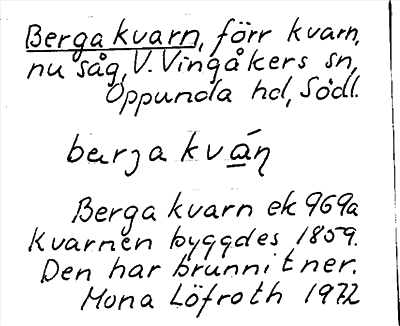 Berga kvarn, förr kvarn,
nu såg, V. Vingåkers sn,
Oppunda hd, Södl.
barja kván̥
Berga kvarn ek 969a
Kvarnen byggdes 1859.
Den har brunnit ner.
Mona Löfroth 1972